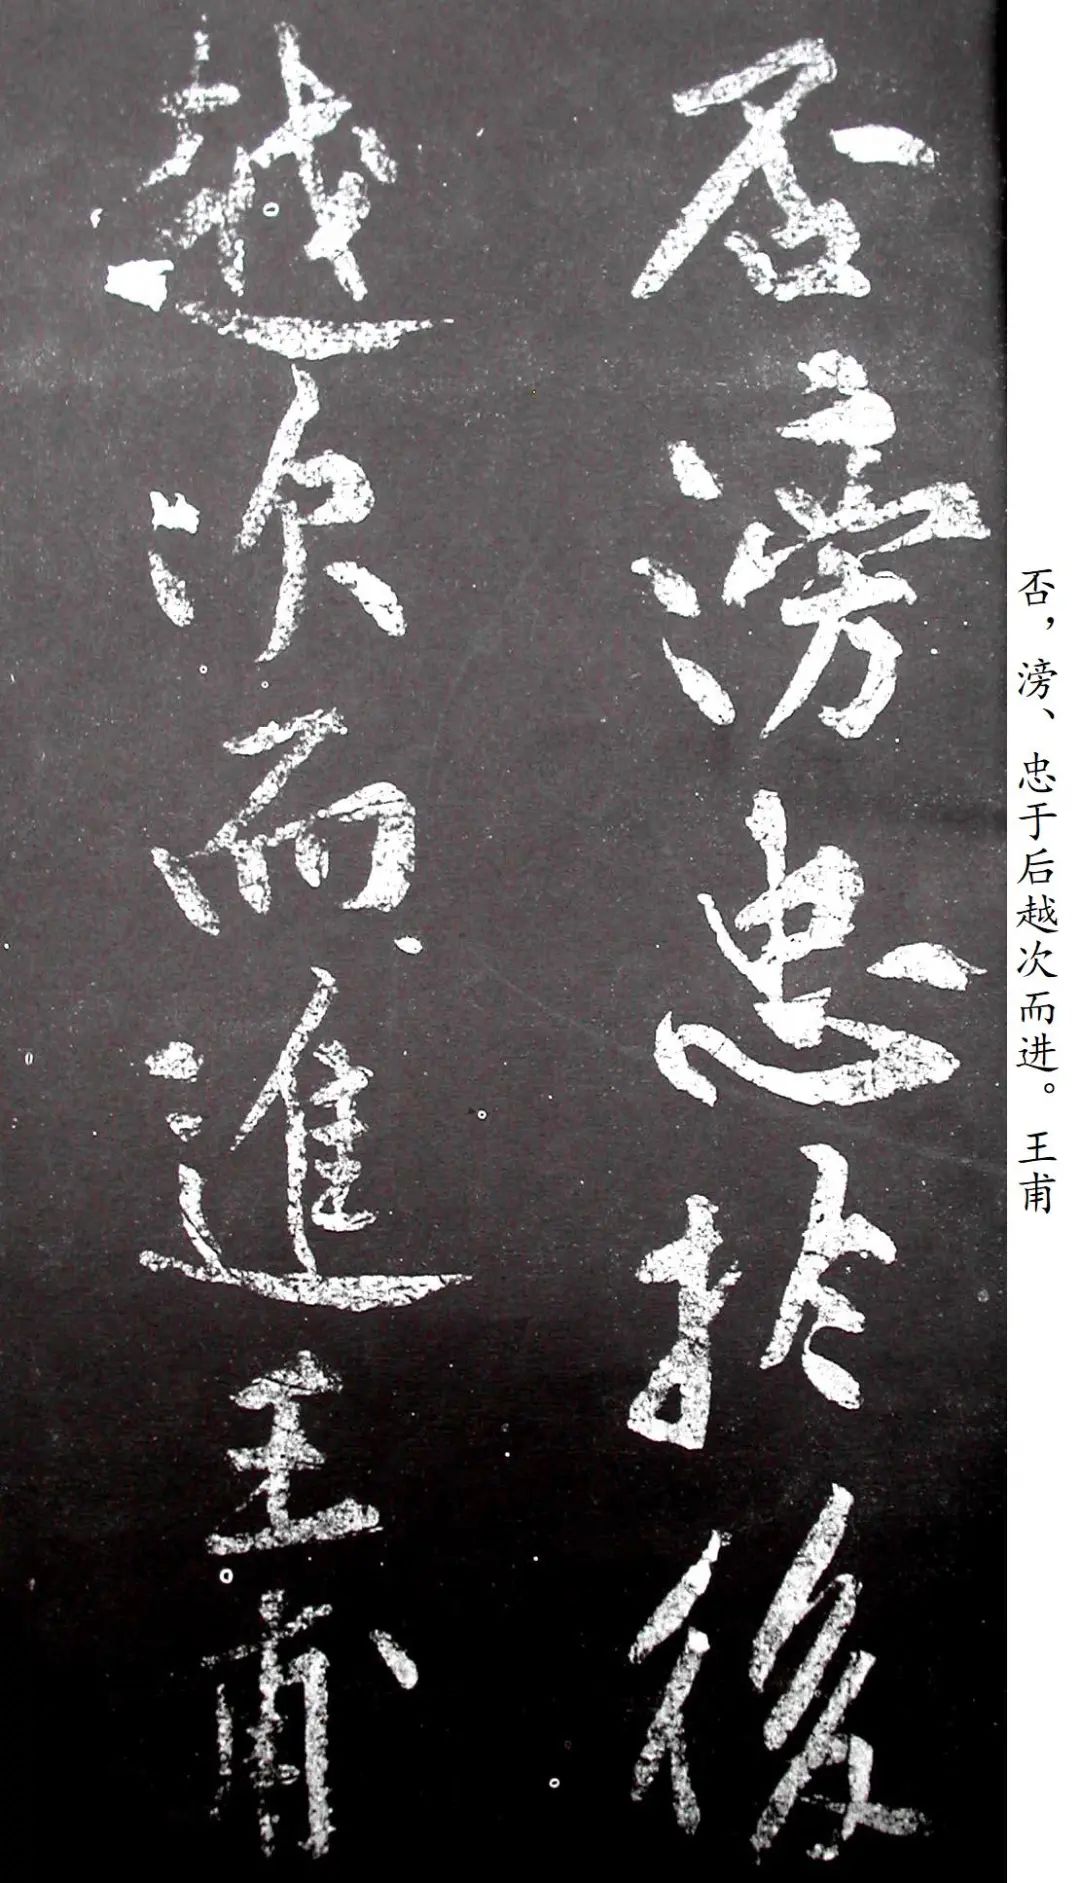 否滂忠於後
越次而進王甫
否，滂、忠于后越次而进。王甫